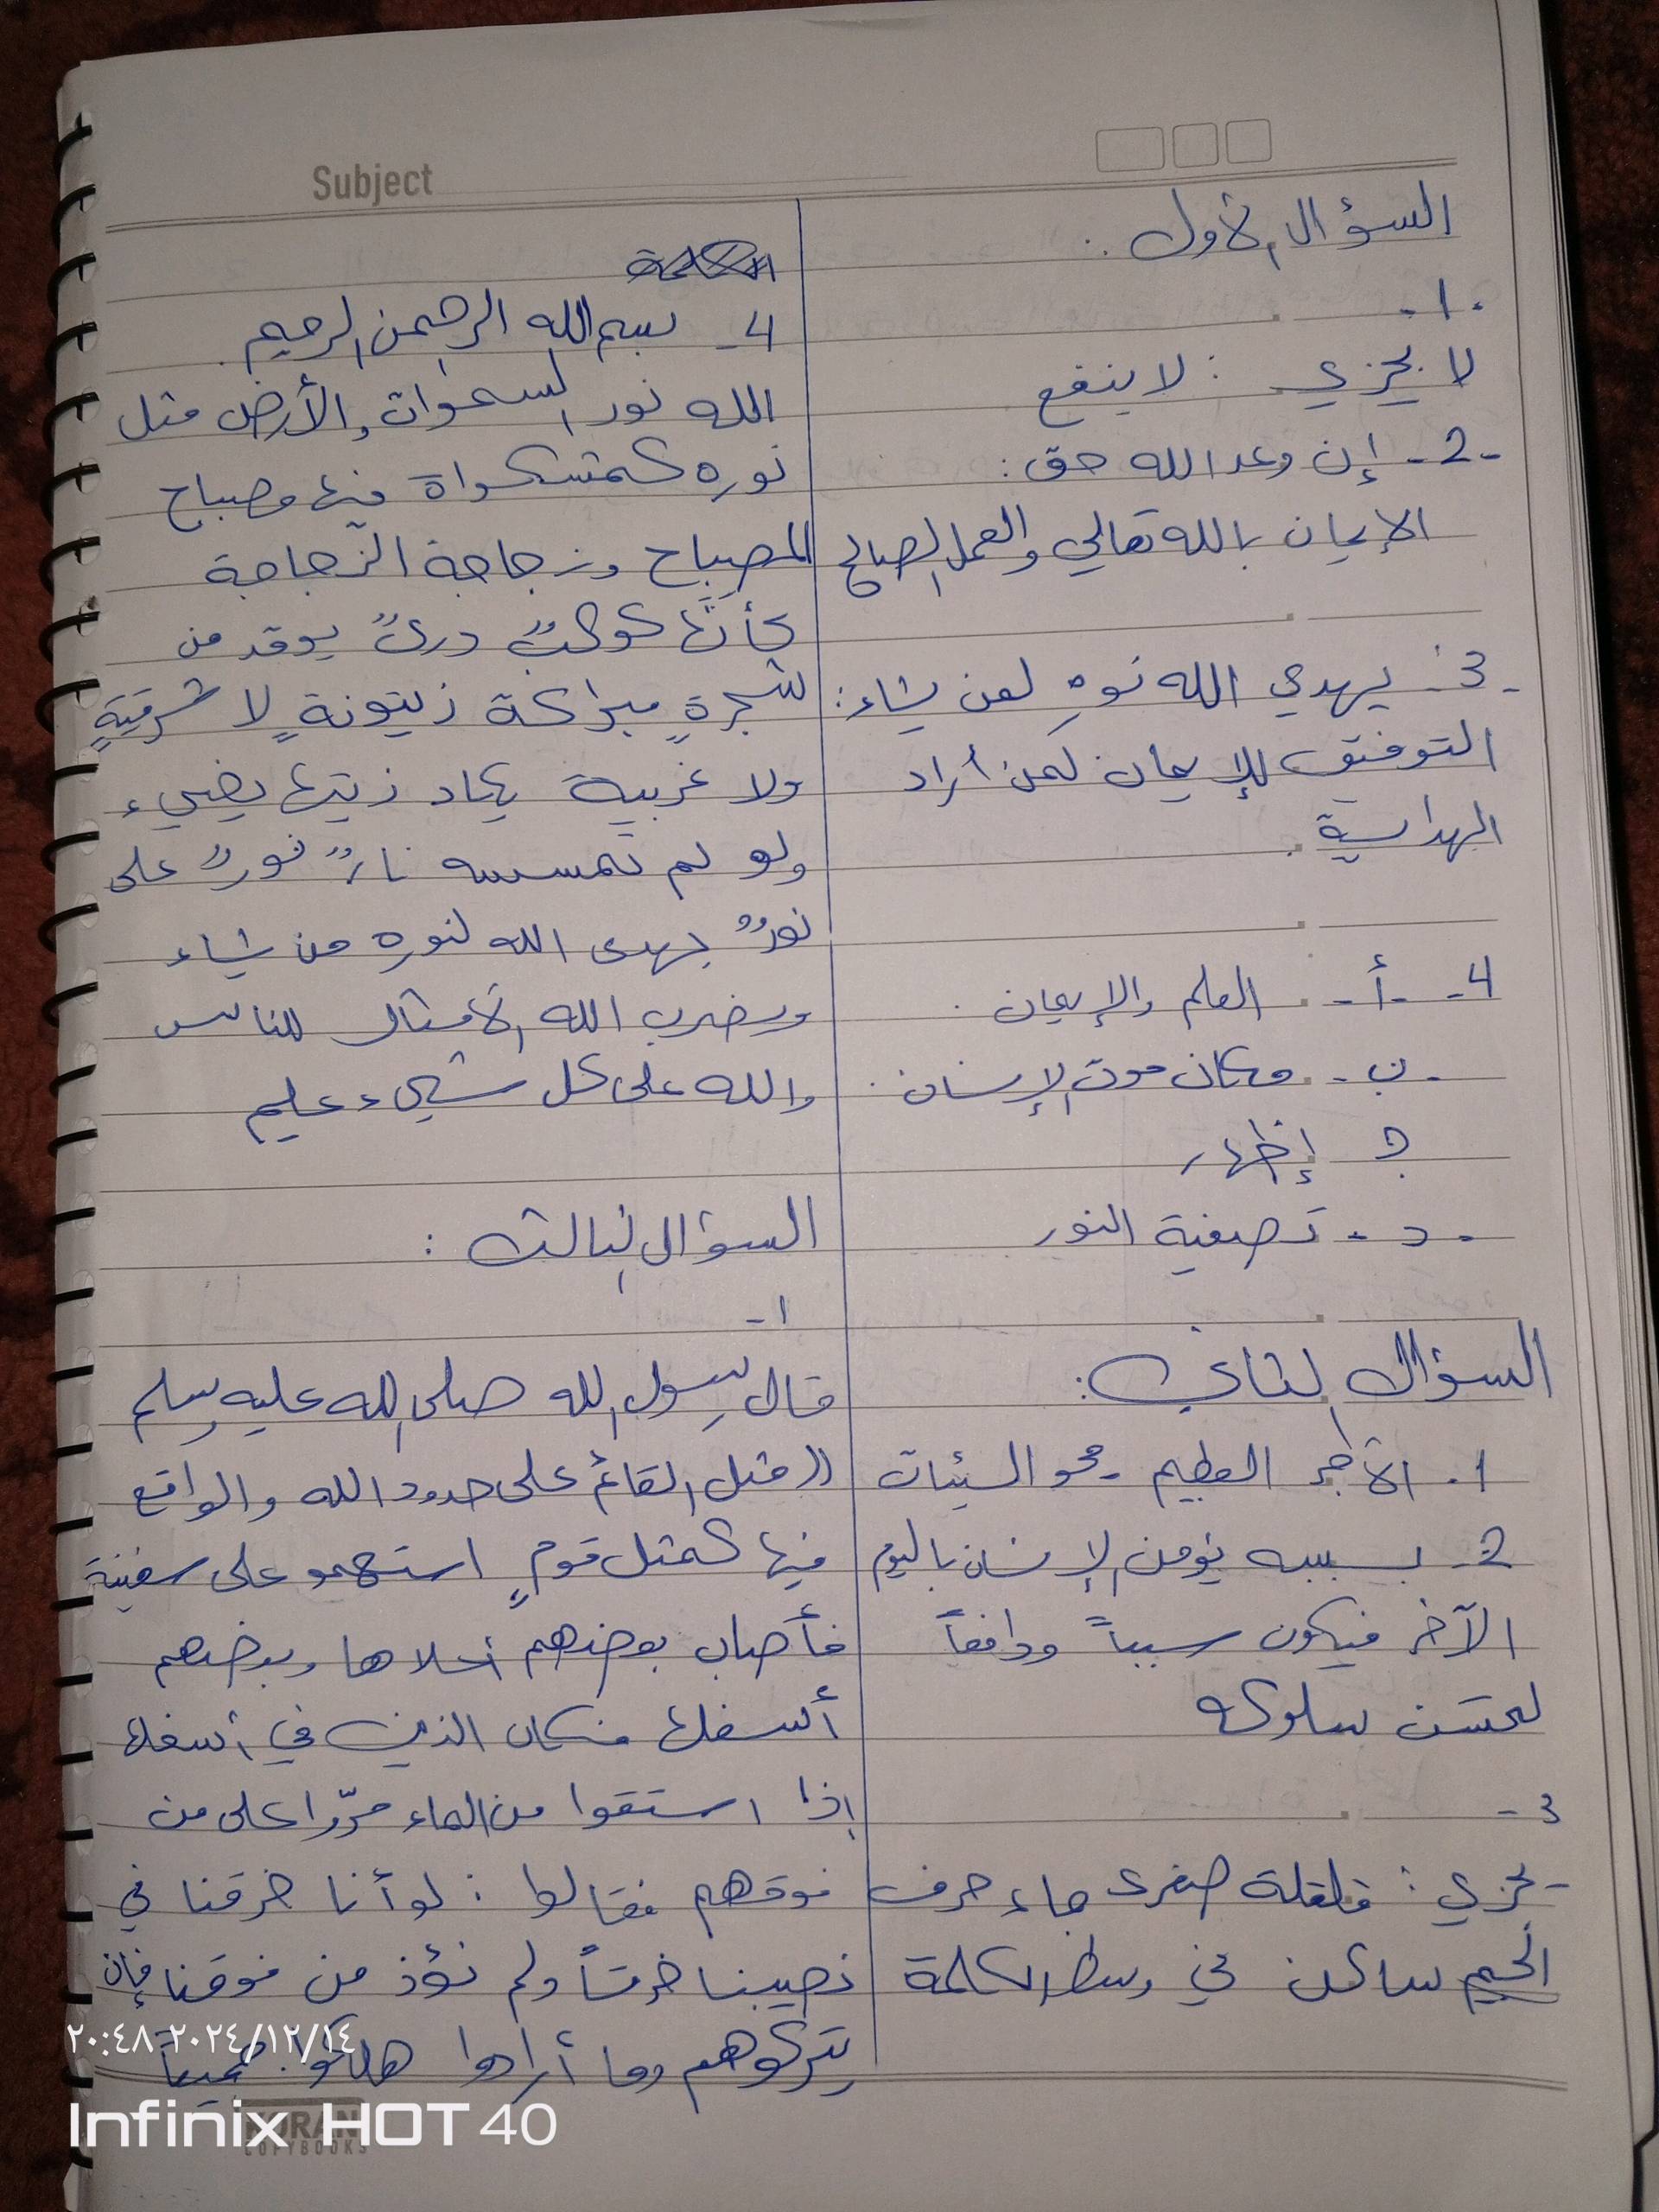 Subject
السؤال الأول :
1-
لا يجزي : لا ينفع
2- إن وعد الله حق :
الإيمان بالله تعالى والعمل الصالح
3- يهدي الله نوره لمن يشاء :
التوفيق للإيمان لمن أراد
الهداية .
4- أ- العلم والإيمان .
ب- مكان موت الإنسان .
ج إظهار
د- تصفية النور
السؤال الثاني :
1- الأجر العظيم - محو السيئات
2- بسببه يؤمن الإنسان باليوم
الآخر فيكون سبباً ودافعاً
لحسن سلوكه
3-
يجزي : قلقلة صغرى جاء حرف
الجيم ساكن في وسط الكلمة
4- بسم الله الرحمن الرحيم
الله نور السموات والأرض مثل
نوره كمشكواة فيها مصباح
المصباح وزجاجة الزجاجة
كأنَّها كوكبٌ دريٌ يوقد من
شجرةٍ مبراكة زيتونةٍ لا شرقيةٍ
ولا غربية يكاد زيتها يضيء
ولو لم تمسسه نارٌ نورٌ على
نورٌ يهدى الله لنوره من يشاء
ويضرب الله الأمثال للناس
والله على كل شيء عليم
السؤال الثالث :
1-
قال رسول الله صلى الله عليه وسلم
(( مثل القائم على حدود الله والواقع
فيها كمثل قومٍ استهمو على سفينة
فأصاب بعضهم أعلاها وبعضهم
أسفلها فكان الذين في أسفلها
إذا استقوا من الماء مرّوا على من
فوقهم فقالوا : لو أنا خرقنا في
نصيبنا خرقاً ولم نؤذ من فوقنا فإن
يتركوهم وما أرادوا هلكوا جميعاً
٢٠:٤٨ ٢٠٢٤/١٢/١٤
Infinix HOT 40
COPYBOOKS